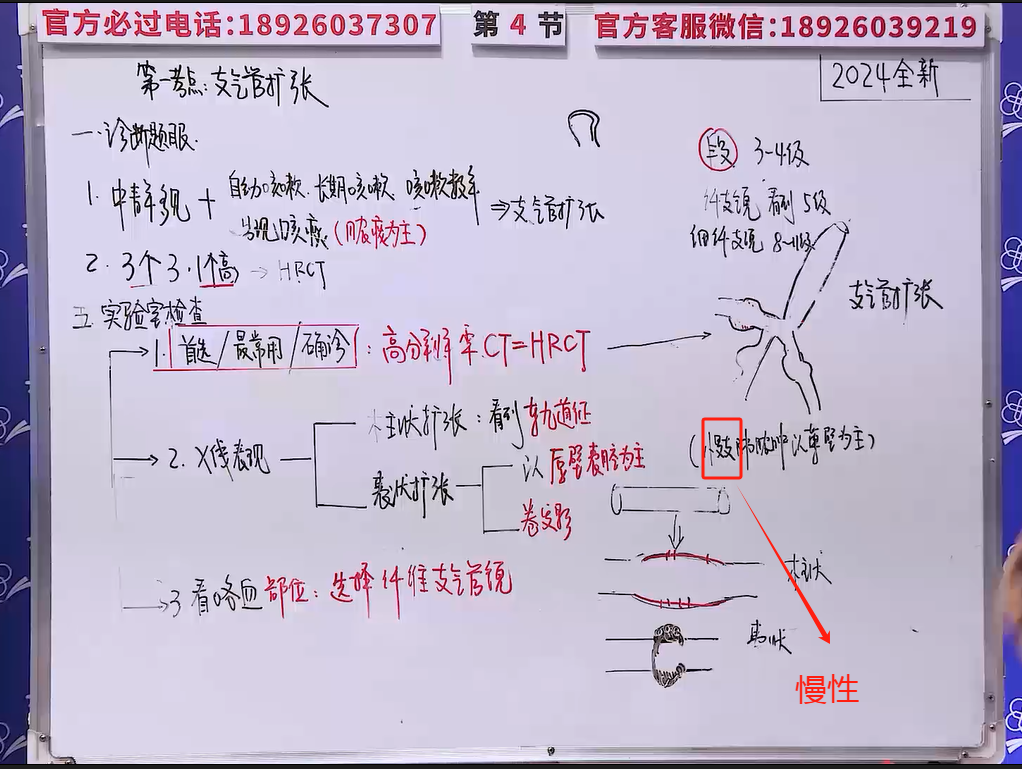 官方必过电话:18926037307
第 4 节
官方客服微信:18926039219
第一考点:支气管扩张
2024全新
一.诊断题眼.
段 3~4级
1. 中青年多见 + 自幼咳嗽、长期咳嗽、咳嗽数年
出现咳痰(脓痰为主)
⇒支气管扩张
纤支镜 看到 5级
细纤支镜 8~11级
2. 3个3.1个高 → HRCT
支气管扩张
五.实验室检查
1. 首选/最常用/确诊:高分辨率CT=HRCT
2. X线表现
柱状扩张:看到轨道征
囊状扩张
以厚壁囊腔为主
卷发影
肺脓肿以薄壁为主)
柱状
囊状
3 看咯血部位:选择纤维支气管镜
慢性